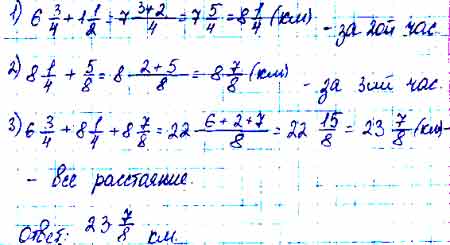 1) 6 3/4 + 1 1/2 = 7 (3+2)/4 = 7 5/4 = 8 1/4 (км) - за 2ой час.
2) 8 1/4 + 5/8 = 8 (2+5)/8 = 8 7/8 (км) - за 3ий час.
3) 6 3/4 + 8 1/4 + 8 7/8 = 22 (6+2+7)/8 = 22 15/8 = 23 7/8 (км) -
- все расстояние.
Ответ: 23 7/8 км.